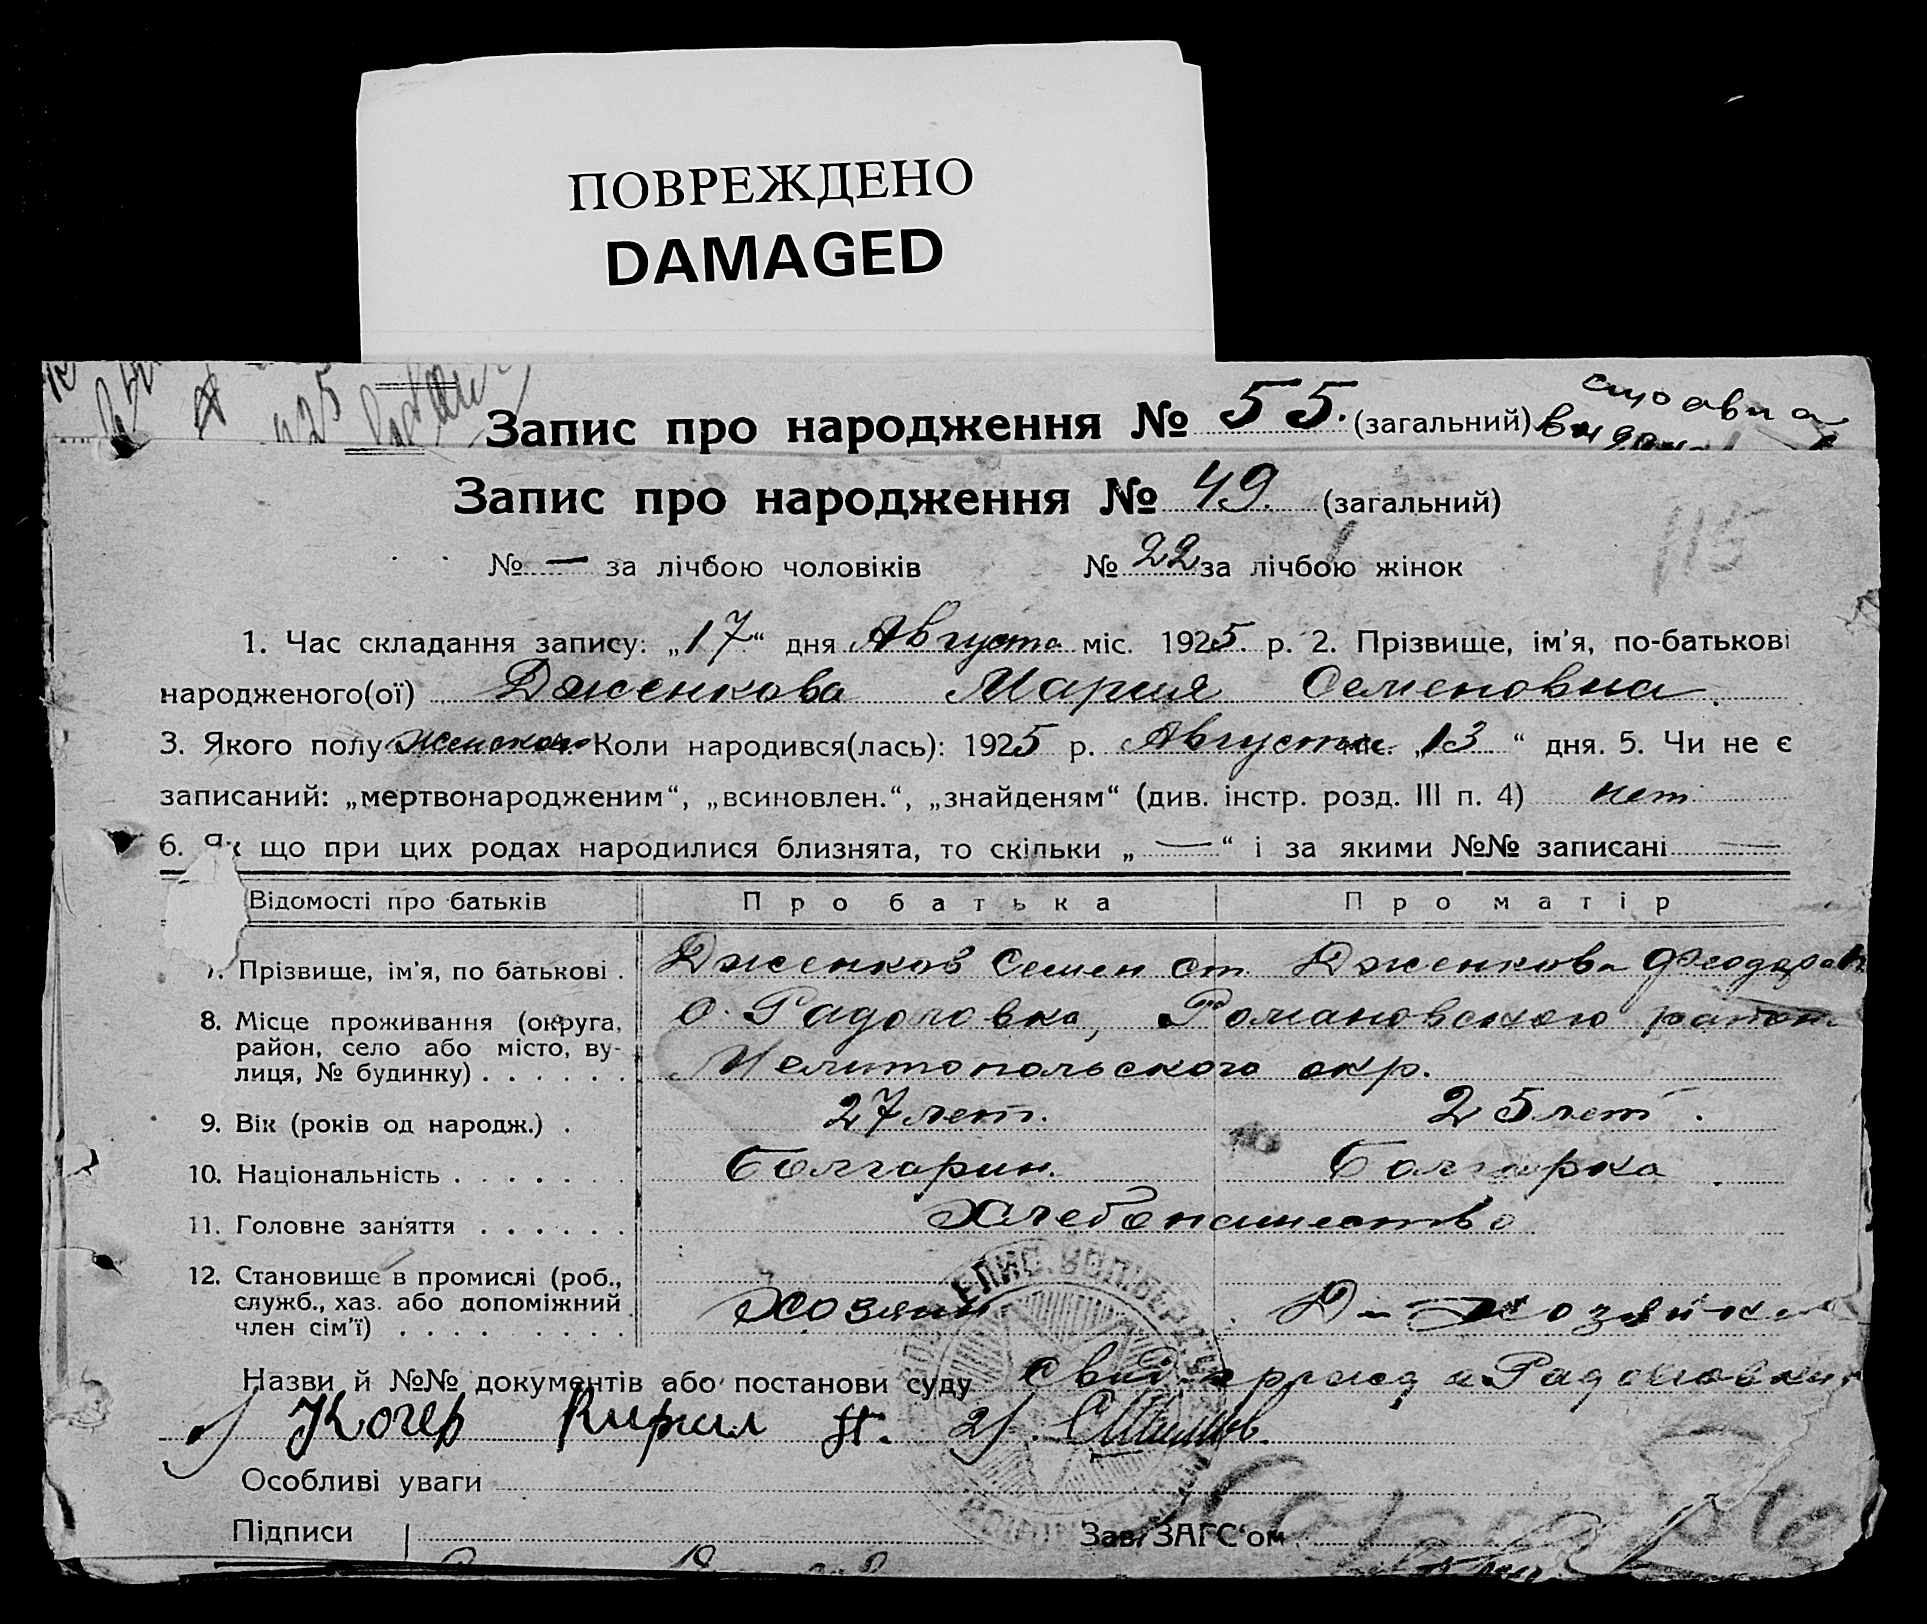 ПОВРЕЖДЕНО
DAMAGED
Запис про народження № 55. (загальний)
Запис про народження № 49. (загальний)
115
№ — за лічбою чоловіків № 22 за лічбою жінок
1. Час складання запису: „17“ дня Августа міс. 1925. р. 2. Прізвище, ім'я, по-батькові
народженого(ої) Дженкова Мария Семеновна.
3. Якого полу женскаго Коли народився(лась): 1925 р. Августа міс. „13“ дня. 5. Чи не є
записаний: „мертвонародженим“, „всиновлен.“, „знайденям“ (див. інстр. розд. III п. 4) нет
6. Як що при цих родах народилися близнята, то скільки „—“ і за якими №№ записані —
Відомості про батьків Про батька Про матір
7. Прізвище, ім'я, по батькові . Дженков Семен Ст. Дженкова Феодора
8. Місце проживання (округа, С. Радоловка, Романовского район
район, село або місто, ву-
лиця, № будинку) . . . . . . Мелитопольского окр.
9. Вік (років од народж.) . 27 лет. 25 лет.
10. Національність . . . . . . . Болгарин. Болгарка
11. Головне заняття . . . . . . Хлебопашество
12. Становище в промислі (роб.,
служб., хаз. або допоміжний Хозяин Д-Хозяйка
член сім'ї) . . . . . . . . .
Назви й №№ документів або постанови суду
1/ Кочер Кирил П. 2/
Особливі уваги
Підписи Зав. ЗАГС'ом